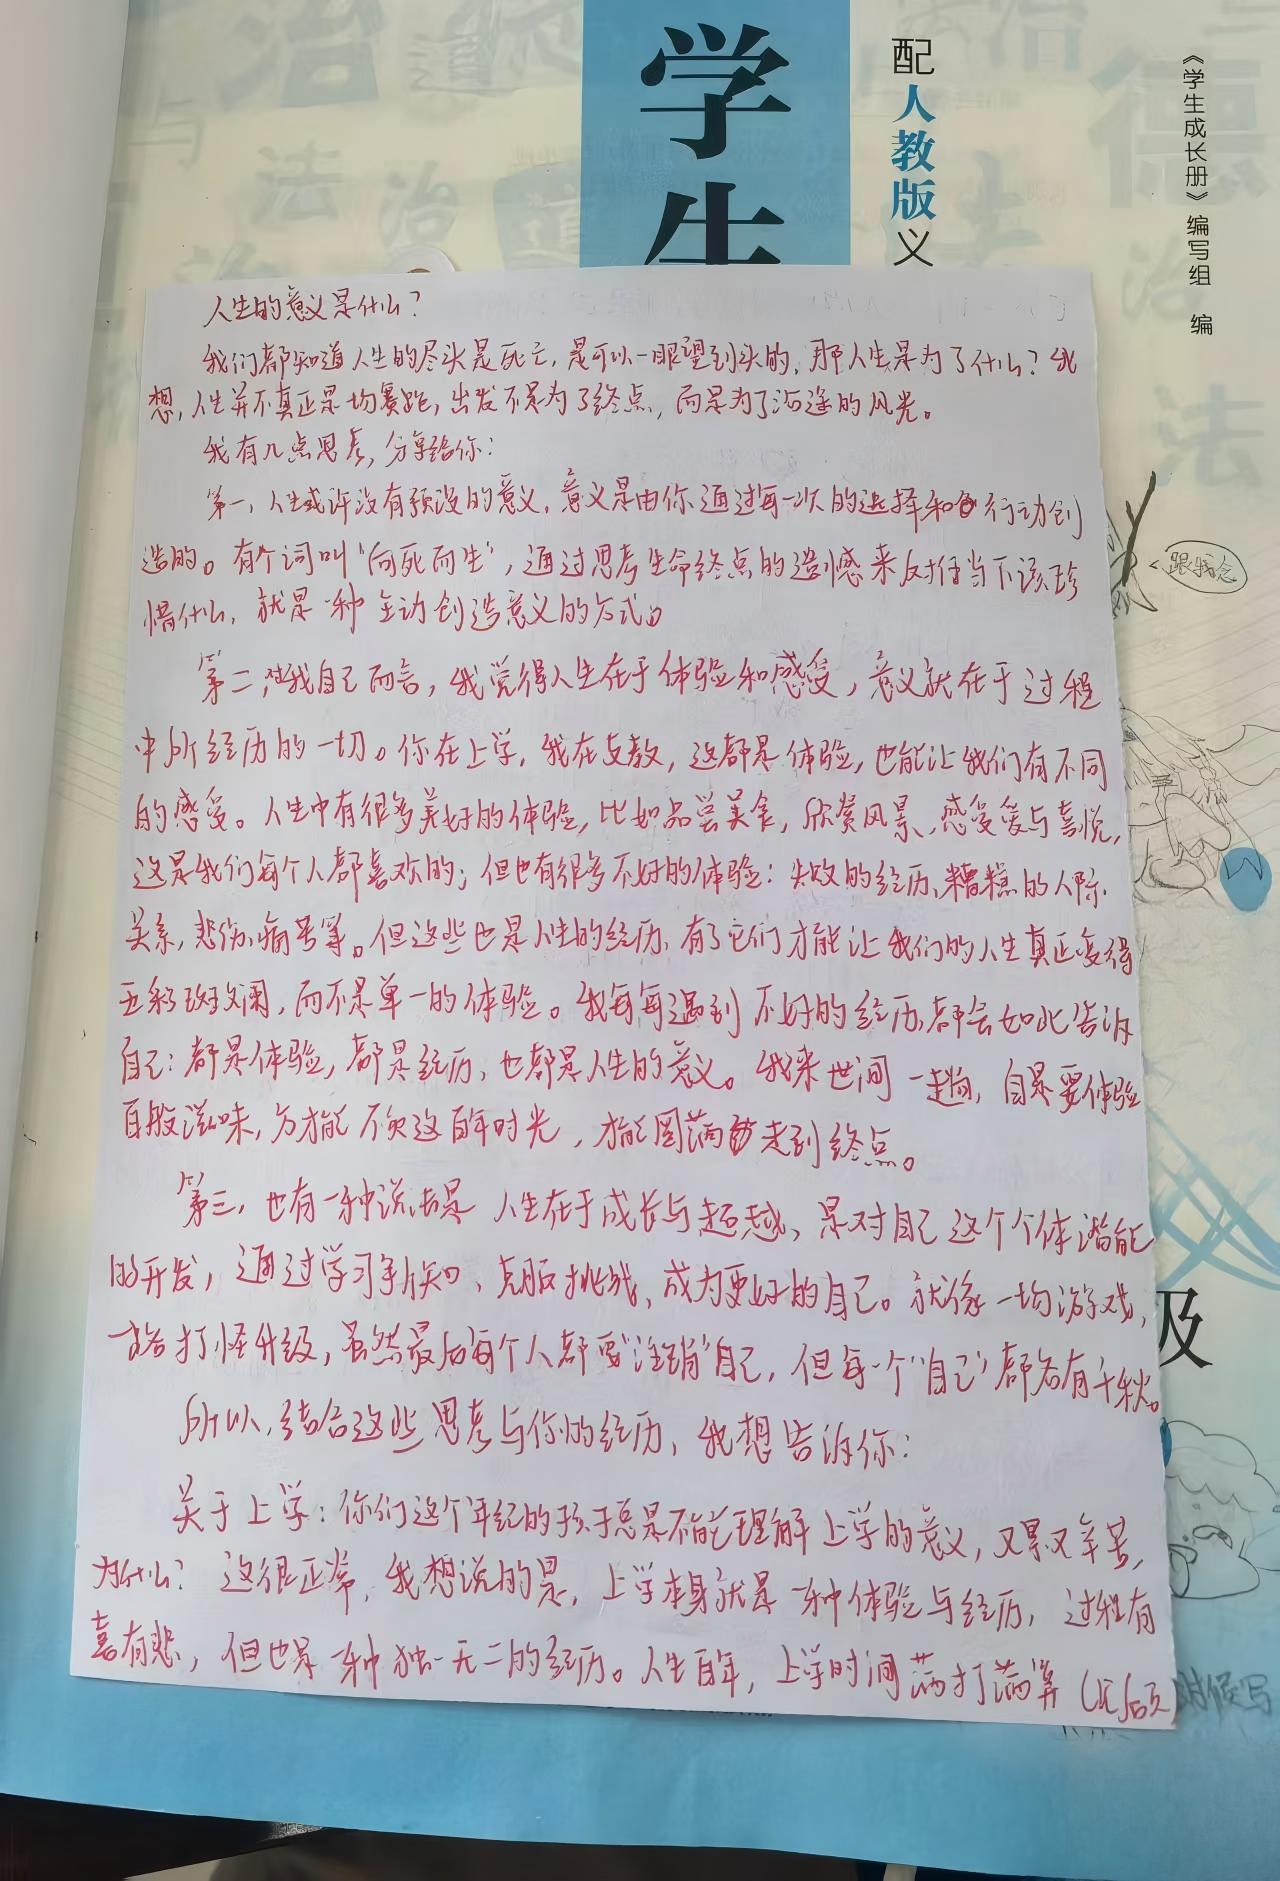 学生
配人教版义
《学生成长册》编写组 编
人生的意义是什么?
我们都知道人生的尽头是死亡,是可以一眼望到头的,那人生是为了什么?我
想,人生并不真正是场赛跑,出发不是为了终点,而是为了沿途的风光。
我有几点思考,分享给你:
第一,人生或许没有预设的意义,意义是由你通过每一次的选择和行动创
造的。有个词叫“向死而生”,通过思考生命终点的遗憾感来反推当下该珍
惜什么,就是一种主动创造意义的方式。
第二,对我自己而言,我觉得人生在于体验和感受,意义就在于过程
中所经历的一切。你在上学,我在支教,这都是体验,也能让我们有不同
的感受。人生中有很多美好的体验,比如品尝美食,欣赏风景、感受爱与喜悦,
这是我们每个人都喜欢的;但也有很多不好的体验:失败的经历、糟糕的人际
关系,悲伤、痛苦等。但这些也是人生的经历,有了它们才能让我们的人生真正变得
五彩斑斓,而不是单一的体验。我每每遇到不好的经历,都会如此告诉
自己:都是体验,都是经历,也都是人生的意义。我来世间一趟,自是要体验
百般滋味,方才能不负这百年时光,才能圆满走到终点。
第三,也有一种说法是人生在于成长与超越、是对自己这个个体潜能
的开发,通过学习新知、克服挑战、成为更好的自己。就像一场游戏,
一路打怪升级,虽然最后每个人都要“注销”自己,但每一个“自己”都各有千秋。
所以,结合这些思考与你的经历,我想告诉你:
关于上学:你们这个年纪的孩子总是不能理解上学的意义,又累又辛苦,
为什么?这很正常,我想说的是,上学本身就是一种体验与经历,过程有
喜有悲,但也是一种独一无二的经历。人生百年,上学时间满打满算(见后页)
跟我念
及
时候写